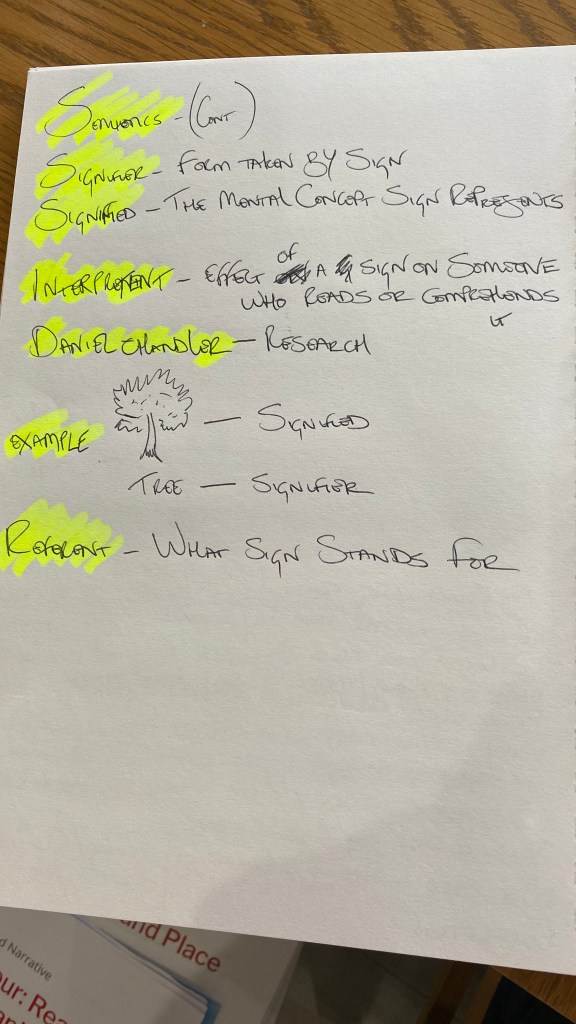 SEMIOTICS - (CONT)
SIGNIFIER - FORM TAKEN BY SIGN
SIGNIFIED - THE MENTAL CONCEPT SIGN REPRESENTS
INTERPRETENT - EFFECT of A SIGN ON SOMEONE
WHO READS OR COMPREHENDS
IT
DANIEL CHANDLER - RESEARCH
EXAMPLE — SIGNIFIED
TREE — SIGNIFIER
REFERENT - WHAT SIGN STANDS FOR
and Place
d Narrative
our: Rea